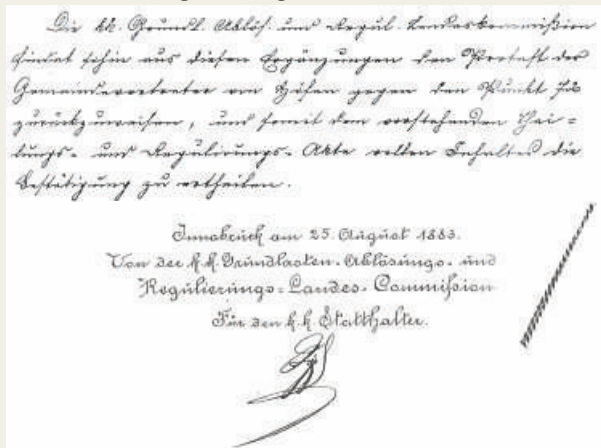 Die kk. Grundl. Ablös. und Regul. Landeskommißion
findet sohin aus diesen Ergänzungen den Protest der
Gemeindevertreter von Höfen gegen den Punkt
zurückzuweisen, und somit dem vorstehenden Thei-
lungs- und Regulirungs-Akte vollen Inhaltes die
Bestätigung zu ertheilen.
Innsbruck am 25. August 1883.
Von der k.k. Grundlasten-Ablösungs- und
Regulierungs-Landes-Commißion
Für den k.k. Statthalter.